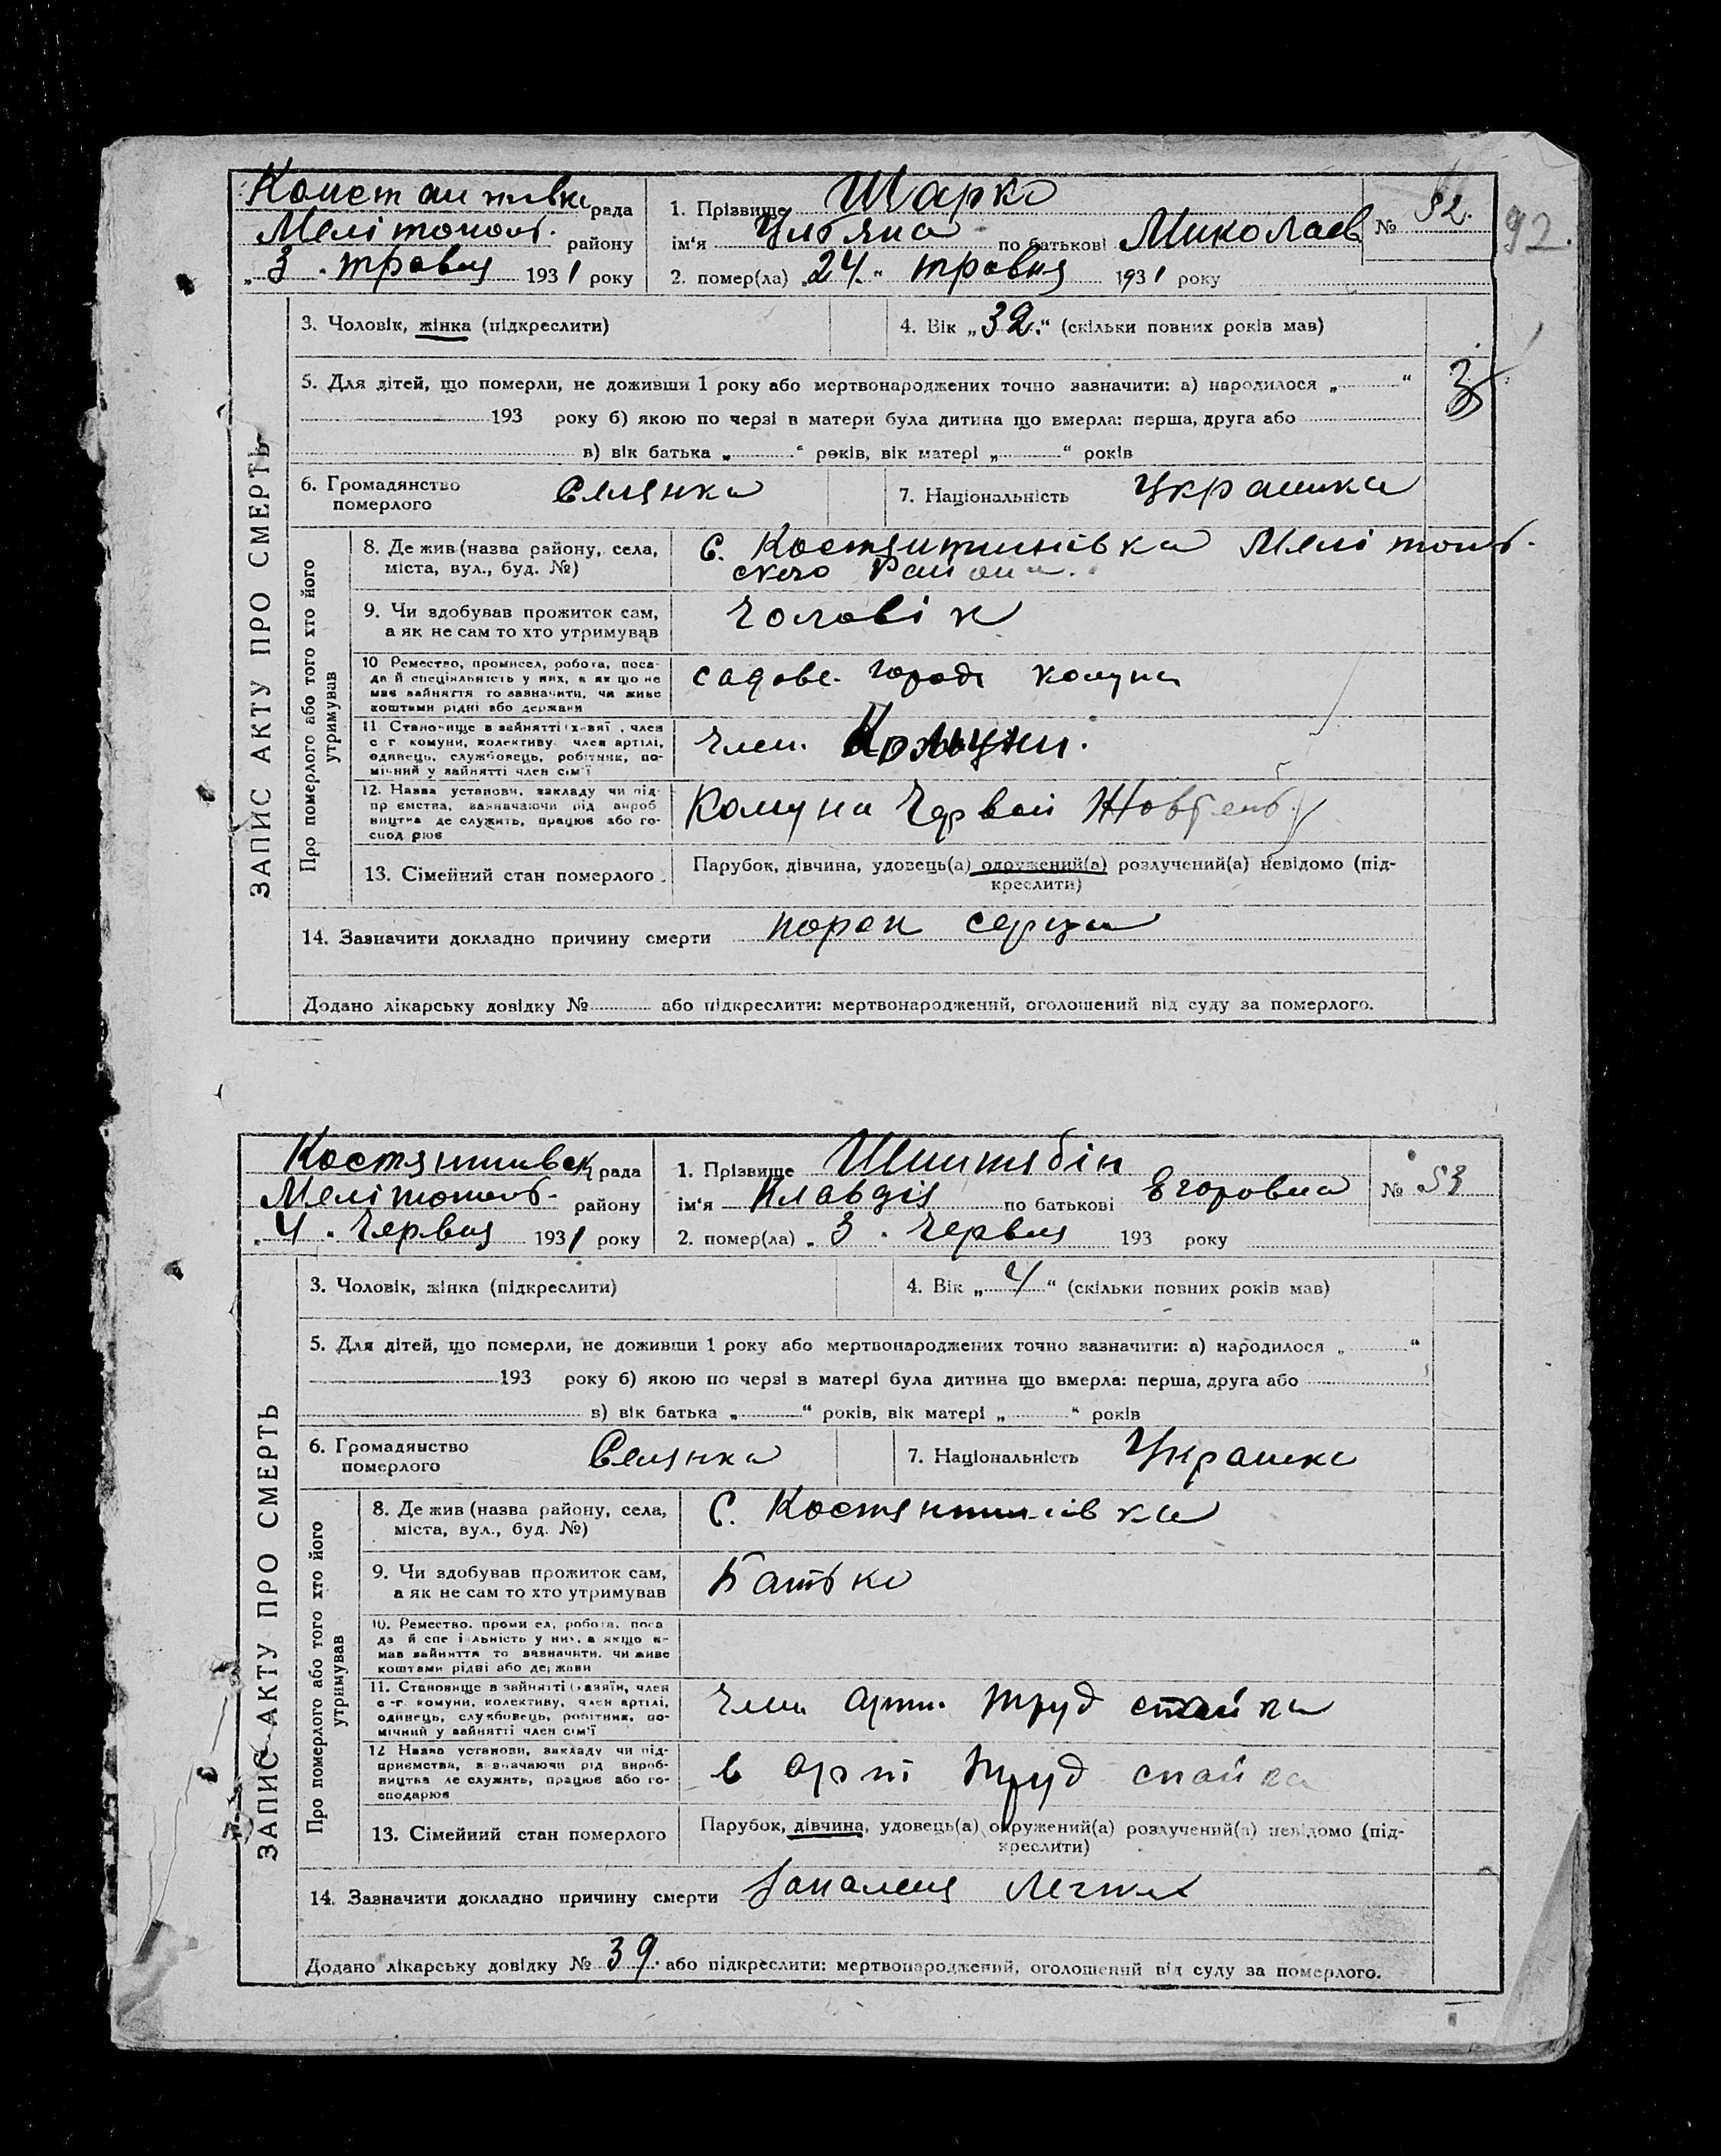 рада
Мелітополь. району
„3. травня 1931 року
1. Прізвище Шарко
ім'я Уляна по батькові Миколаев
2. помер(ла) „24.“ травня 1931 року
№ 52.
92.
ЗАПИС АКТУ ПРО СМЕРТЬ
3. Чоловік, жінка (підкреслити)
4. Вік „32.“ (скільки повних років мав)
5. Для дітей, що померли, не доживши 1 року або мертвонароджених точно зазначити: а) народилося „ “
193 року б) якою по черзі в матери була дитина що вмерла: перша, друга або
в) вік батька „ “ років, вік матері „ “ років
6. Громадянство
померлого
Селянка
7. Національність
Украинка
Про померлого або того хто його
утримував
8. Де жив (назва району, села,
міста, вул., буд. №)
С. Костянтинівка Мелітоп.
ского Района.
9. Чи здобував прожиток сам,
а як не сам то хто утримував
Чоловік
10 Ремество, промисел, робота, поса-
да й спеціяльність у них, а як що не
має зайняття то зазначити, чи живе
коштами рідні або держави
садове. город комуна
11. Становище в зайнятті
с г. комуни, колективу член артілі,
одинець, службовець, робітник, по-
мічний у зайнятті член сім'ї
Член. Комуни.
12. Назва установи, закладу чи під-
пр ємства, зазначаючи рід вироб
ництва де служить, працює або го-
спод рює
Комуна Червон Жовтень
13. Сімейний стан померлого.
Парубок, дівчина, удовець(а) одружений(а) розлучений(а) невідомо (під-
креслити)
14. Зазначити докладно причину смерти порок серца
Додано лікарську довідку № або підкреслити: мертвонароджений, оголошений від суду за померлого.
рада
Мелітополь. району
„4. Червня 1931 року
1. Прізвище
ім'я Клавдія по батькові Егоровна
2. помер(ла) „3. Червня 193 року
№ 53
ЗАПИС АКТУ ПРО СМЕРТЬ
3. Чоловік, жінка (підкреслити)
4. Вік „4“ (скільки повних років мав)
5. Для дітей, що померли, не доживши 1 року або мертвонароджених точно зазначити: а) народилося „ “
193 року б) якою по черзі в матері була дитина що вмерла: перша, друга або
в) вік батька „ “ років, вік матері „ “ років
6. Громадянство
померлого
Селянка
7. Національність
Украинка
Про померлого або того хто його
утримував
8. Де жив (назва району, села,
міста, вул., буд. №)
С. Костянтинівка
9. Чи здобував прожиток сам,
а як не сам то хто утримував
Батько
10. Ремество, проми ел, робота, поса
да й спе і льність у них, а якщо н-
мав зайняття то зазначити, чи живе
коштами рідні або держави
11. Становище в зайнятті (хазяїн, член
с-г. комуни, колективу, член артілі,
одинець, службовець, робітник, по-
мічний у зайнятті член сім'ї
Член арт. Труд спайка
12 Назва установи, закладу чи під-
приємства, зазначаючи рід вироб-
ництва де служить, працює або го-
сподарює
в арт Труд спайка
13. Сімейний стан померлого
Парубок, дівчина, удовець(а) одружений(а) розлучений(а) невідомо (під-
креслити)
14. Зазначити докладно причину смерти Запаленя Легких
Додано лікарську довідку № 39. або підкреслити: мертвонароджений, оголошений від суду за померлого.